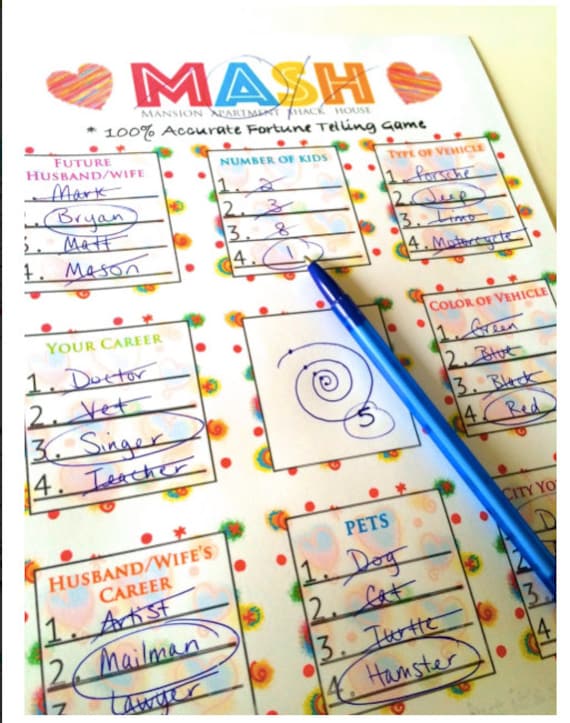 MASH
MANSION APARTMENT SHACK HOUSE
* 100% Accurate Fortune Telling Game
FUTURE
HUSBAND/WIFE
Mark
Bryan
Matt
Mason
NUMBER OF KIDS
1. 2
2. 3
3. 8
4. 1
TYPE OF VEHICLE
1. Porsche
2. Jeep
3. Limo
4. Motorcycle
YOUR CAREER
1. Doctor
2. Vet
3. Singer
4. Teacher
5
COLOR OF VEHICLE
1. Green
2. Blue
3. Black
4. Red
HUSBAND/WIFE'S
CAREER
1. Artist
2. Mailman
3. Lawyer
PETS
1. Dog
2. Cat
3. Turtle
4. Hamster
CITY YO
3.
4